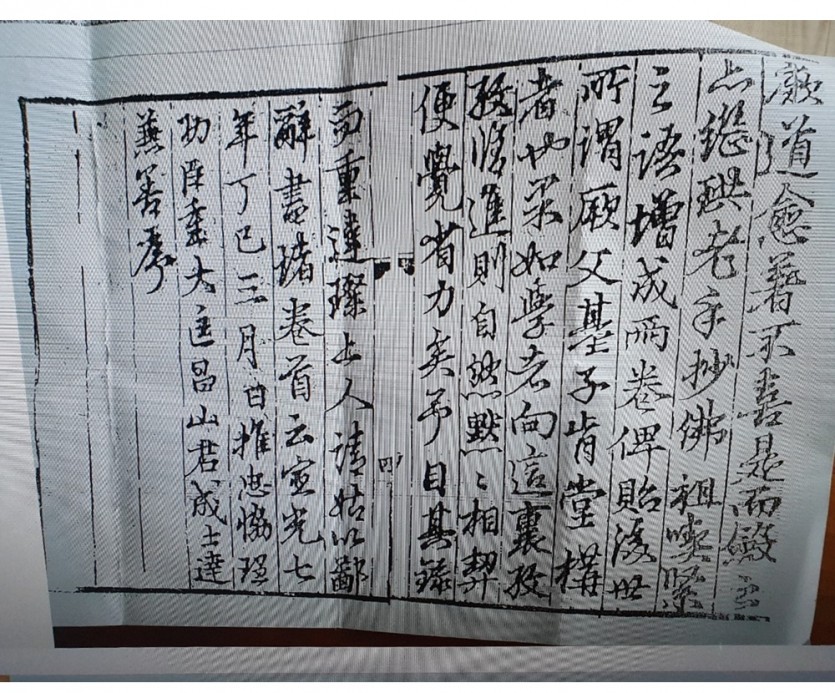 道愈著不是而之
繼珙老手抄佛祖喫緊
之語增成兩卷俾貽後世
所謂厥父基子肯堂構
者也果如學者向這裏孜
孜修進則自然默〻相契
便覺省力矣予目其錄
而重違璨上人請姑以鄙
辭書諸卷首云宣光七
年丁巳三月日推忠恊理
功臣重大匡昌山君成士達
兼善序